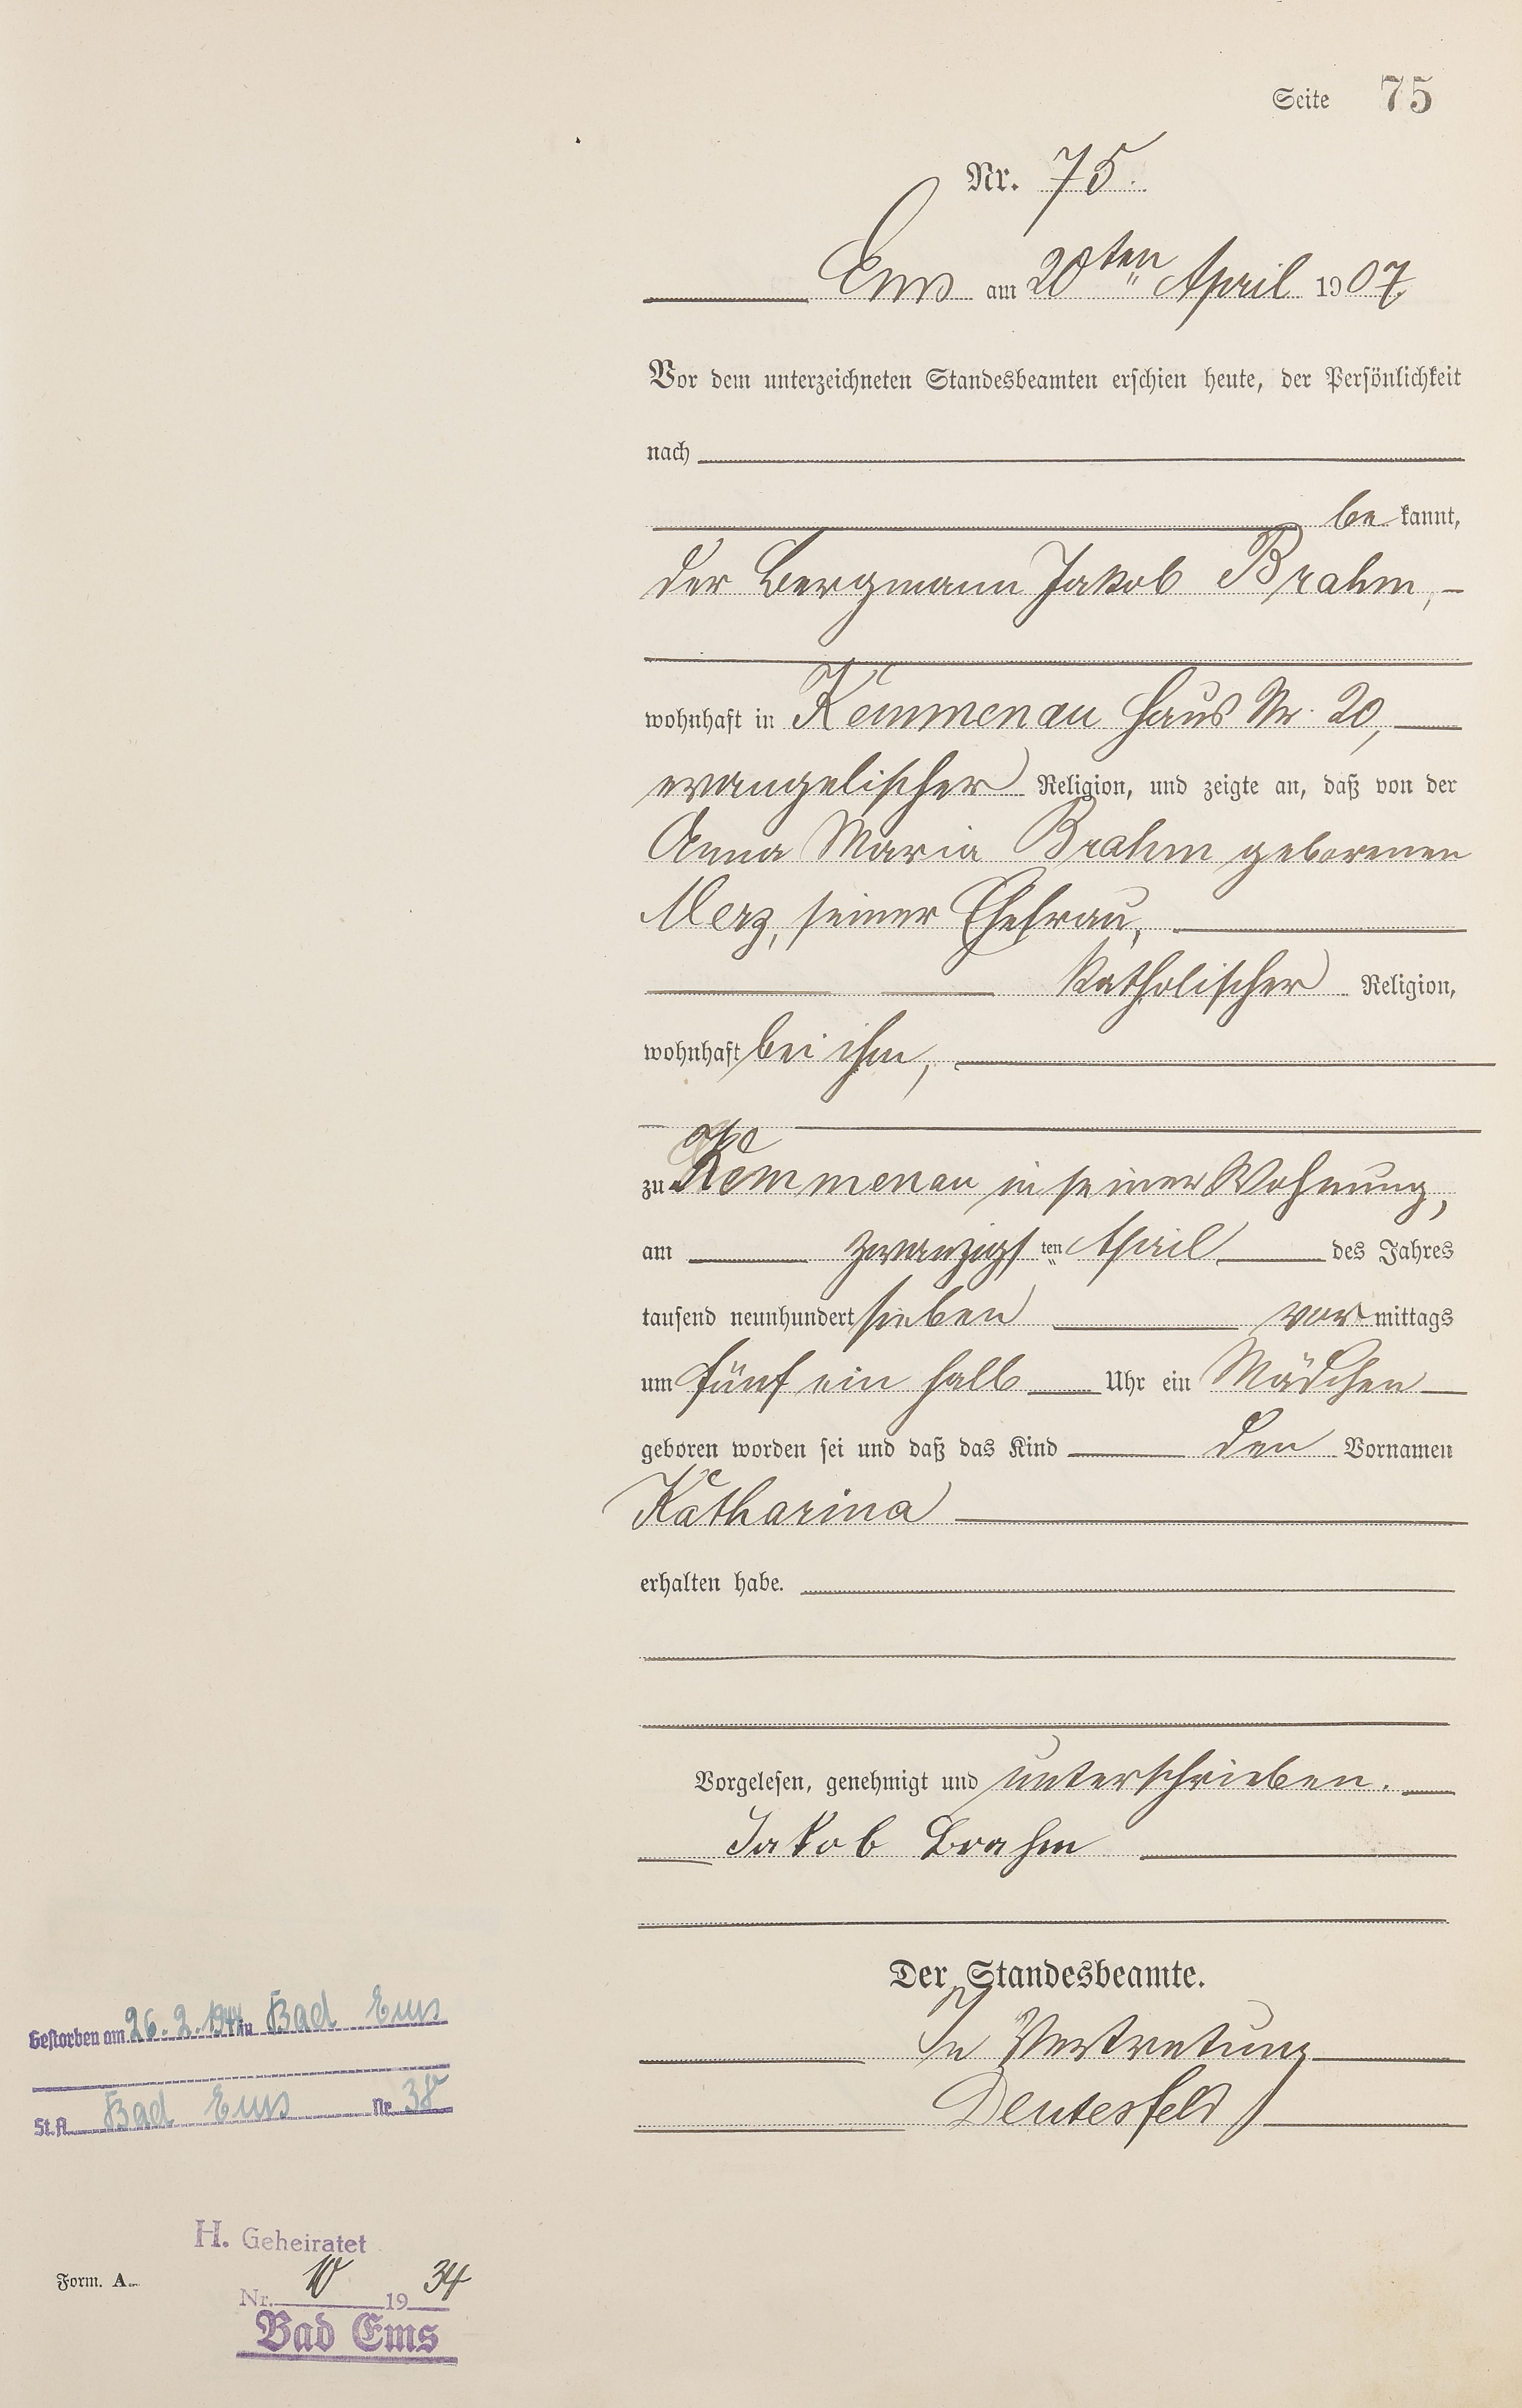 Seite 75
Nr. 75.
Ems am 20ten April 1907
Vor dem unterzeichneten Standesbeamten erschien heute, der Persönlichkeit
nach
be kannt,
der Bergmann Jakob Brahm,
wohnhaft in Kemmenau Haus Nr. 20,
evangelischer Religion, und zeigte an, daß von der
Anna Maria Brahm geborenen
Merz, seiner Ehefrau,
katholischer Religion,
wohnhaft bei ihm,
zu Kemmenau in seiner Wohnung,
am zwanzigsten April des Jahres
tausend neunhundert sieben vormittags
um fünf ein halb Uhr ein Mädchen
geboren worden sei und daß das Kind den Vornamen
Katharina
erhalten habe.
Vorgelesen, genehmigt und unterschrieben.
Jakob Brahm
Der Standesbeamte.
In Vertretung
Deutesfeld
Gestorben am 26.2.1944 in Bad Ems
St.A. Bad Ems Nr. 38
H. Geheiratet
Form. A.
Nr. 10 1934
Bad Ems